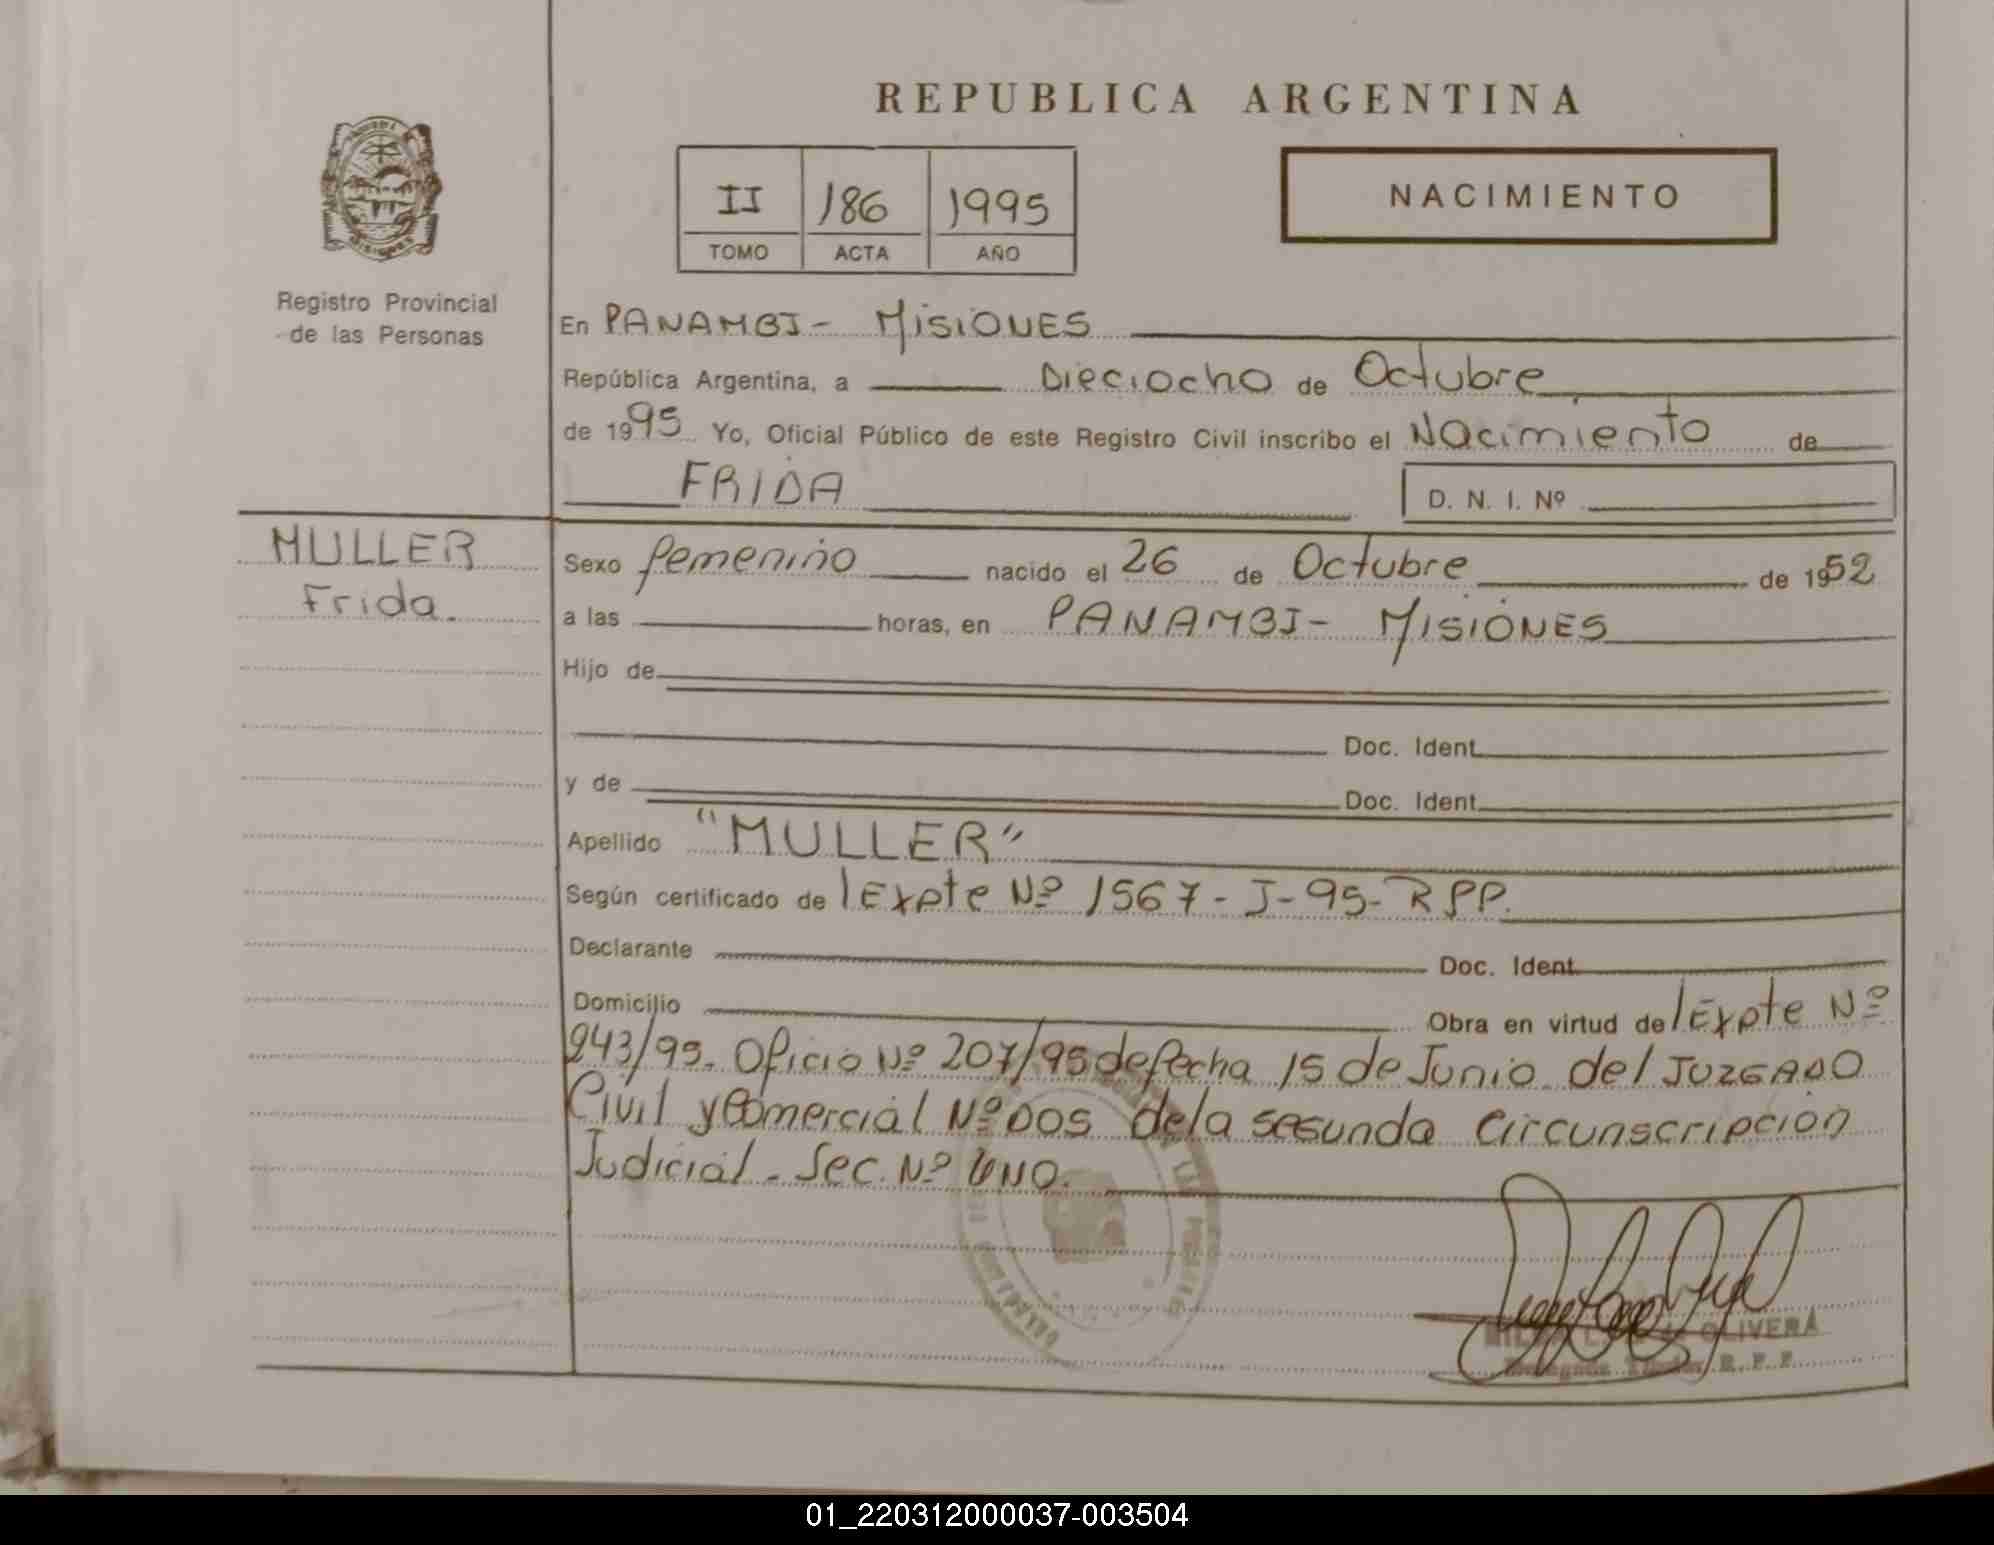 REPUBLICA ARGENTINA
II 186 1995
TOMO ACTA AÑO
NACIMIENTO
MISIONES
Registro Provincial
de las Personas
En PANAMBI - MISIONES
República Argentina, a Dieciocho de Octubre
de 1995 Yo, Oficial Público de este Registro Civil inscribo el Nacimiento de
FRIDA
D. N. I. Nº
MULLER
Frida.
Sexo femenino nacido el 26 de Octubre de 1952
a las horas, en PANAMBI - MISIONES
Hijo de
Doc. Ident.
y de Doc. Ident.
Apellido "MULLER"
Según certificado de Expte Nº 1567 - J - 95 - RPP.
Declarante Doc. Ident.
Domicilio Obra en virtud de Expte Nº
243/95. Oficio Nº 207/95 de fecha 15 de Junio del JUZGADO
Civil y Comercial Nº DOS de la segunda circunscripción
Judicial - Sec. Nº UNO.
OLIVERA
Titular R. P. P.
01_220312000037-003504